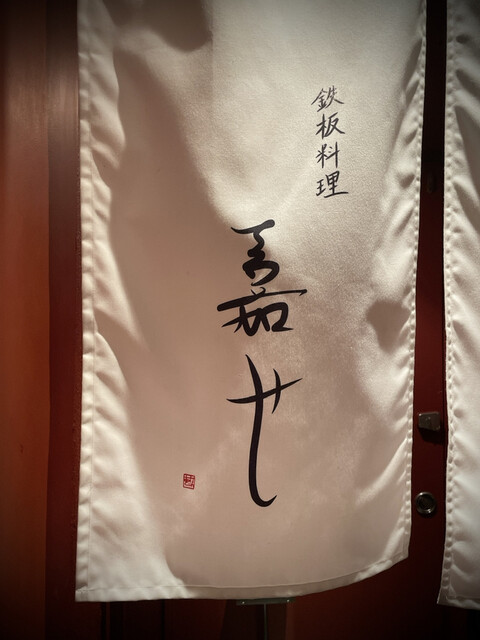 鉄板料理
嘉せ